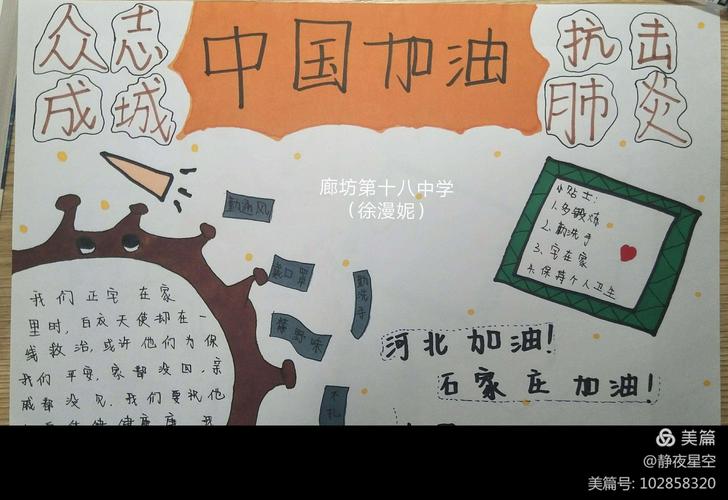 众志成城
中国加油
抗击肺炎
廊坊第十八中学
（徐漫妮）
勤通风
戴口罩
勤洗手
禁野味
不扎
小贴士：
1.多锻炼
2.勤洗手
3.宅在家
4.保持个人卫生
河北加油！
石家庄加油！
我们正宅在家
里时，白衣天使却在一
线救治，或许他们为保
我们平安，家都没回，亲
戚都没见，我们要祝他
健康
美篇
@静夜星空
美篇号: 102858320